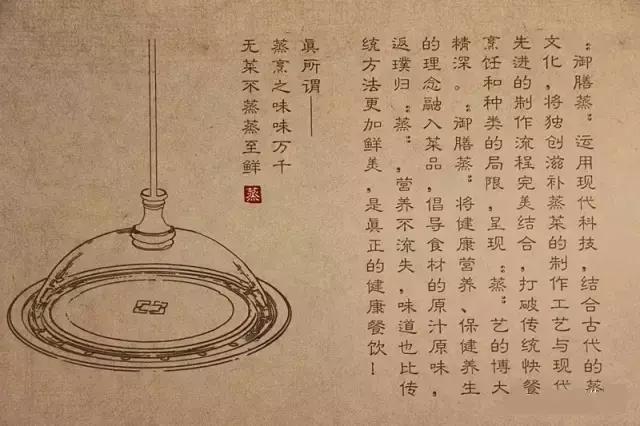 “御膳蒸”运用现代科技，结合古代的蒸
文化，将独创滋补蒸菜的制作工艺与现代
先进的制作流程完美结合，打破传统快餐
烹饪和种类的局限，呈现“蒸”艺的博大
精深。“御膳蒸”将健康营养、保健养生
的理念融入菜品，倡导食材的原汁原味，
返璞归“蒸”，营养不流失，味道也比传
统方法更加鲜美，是真正的健康餐饮！
真所谓——
蒸烹之味味万千
无菜不蒸蒸至鲜
蒸